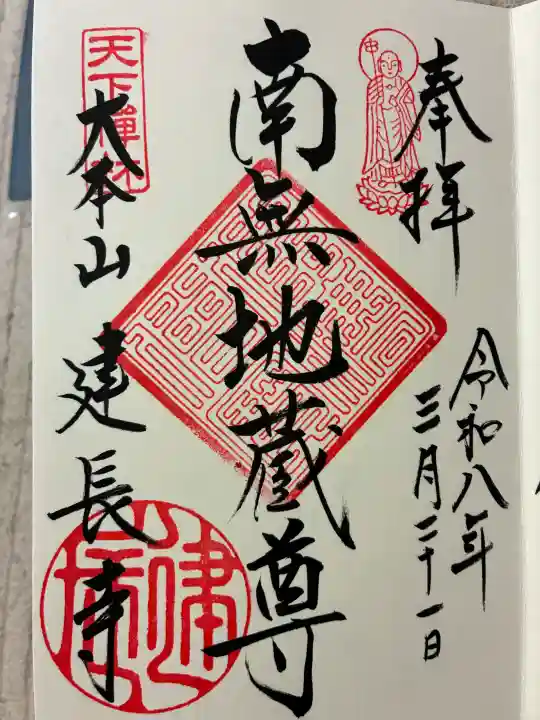 奉拝
令和八年
三月二十一日
南無地蔵尊
天下禅林
大本山 建長寺